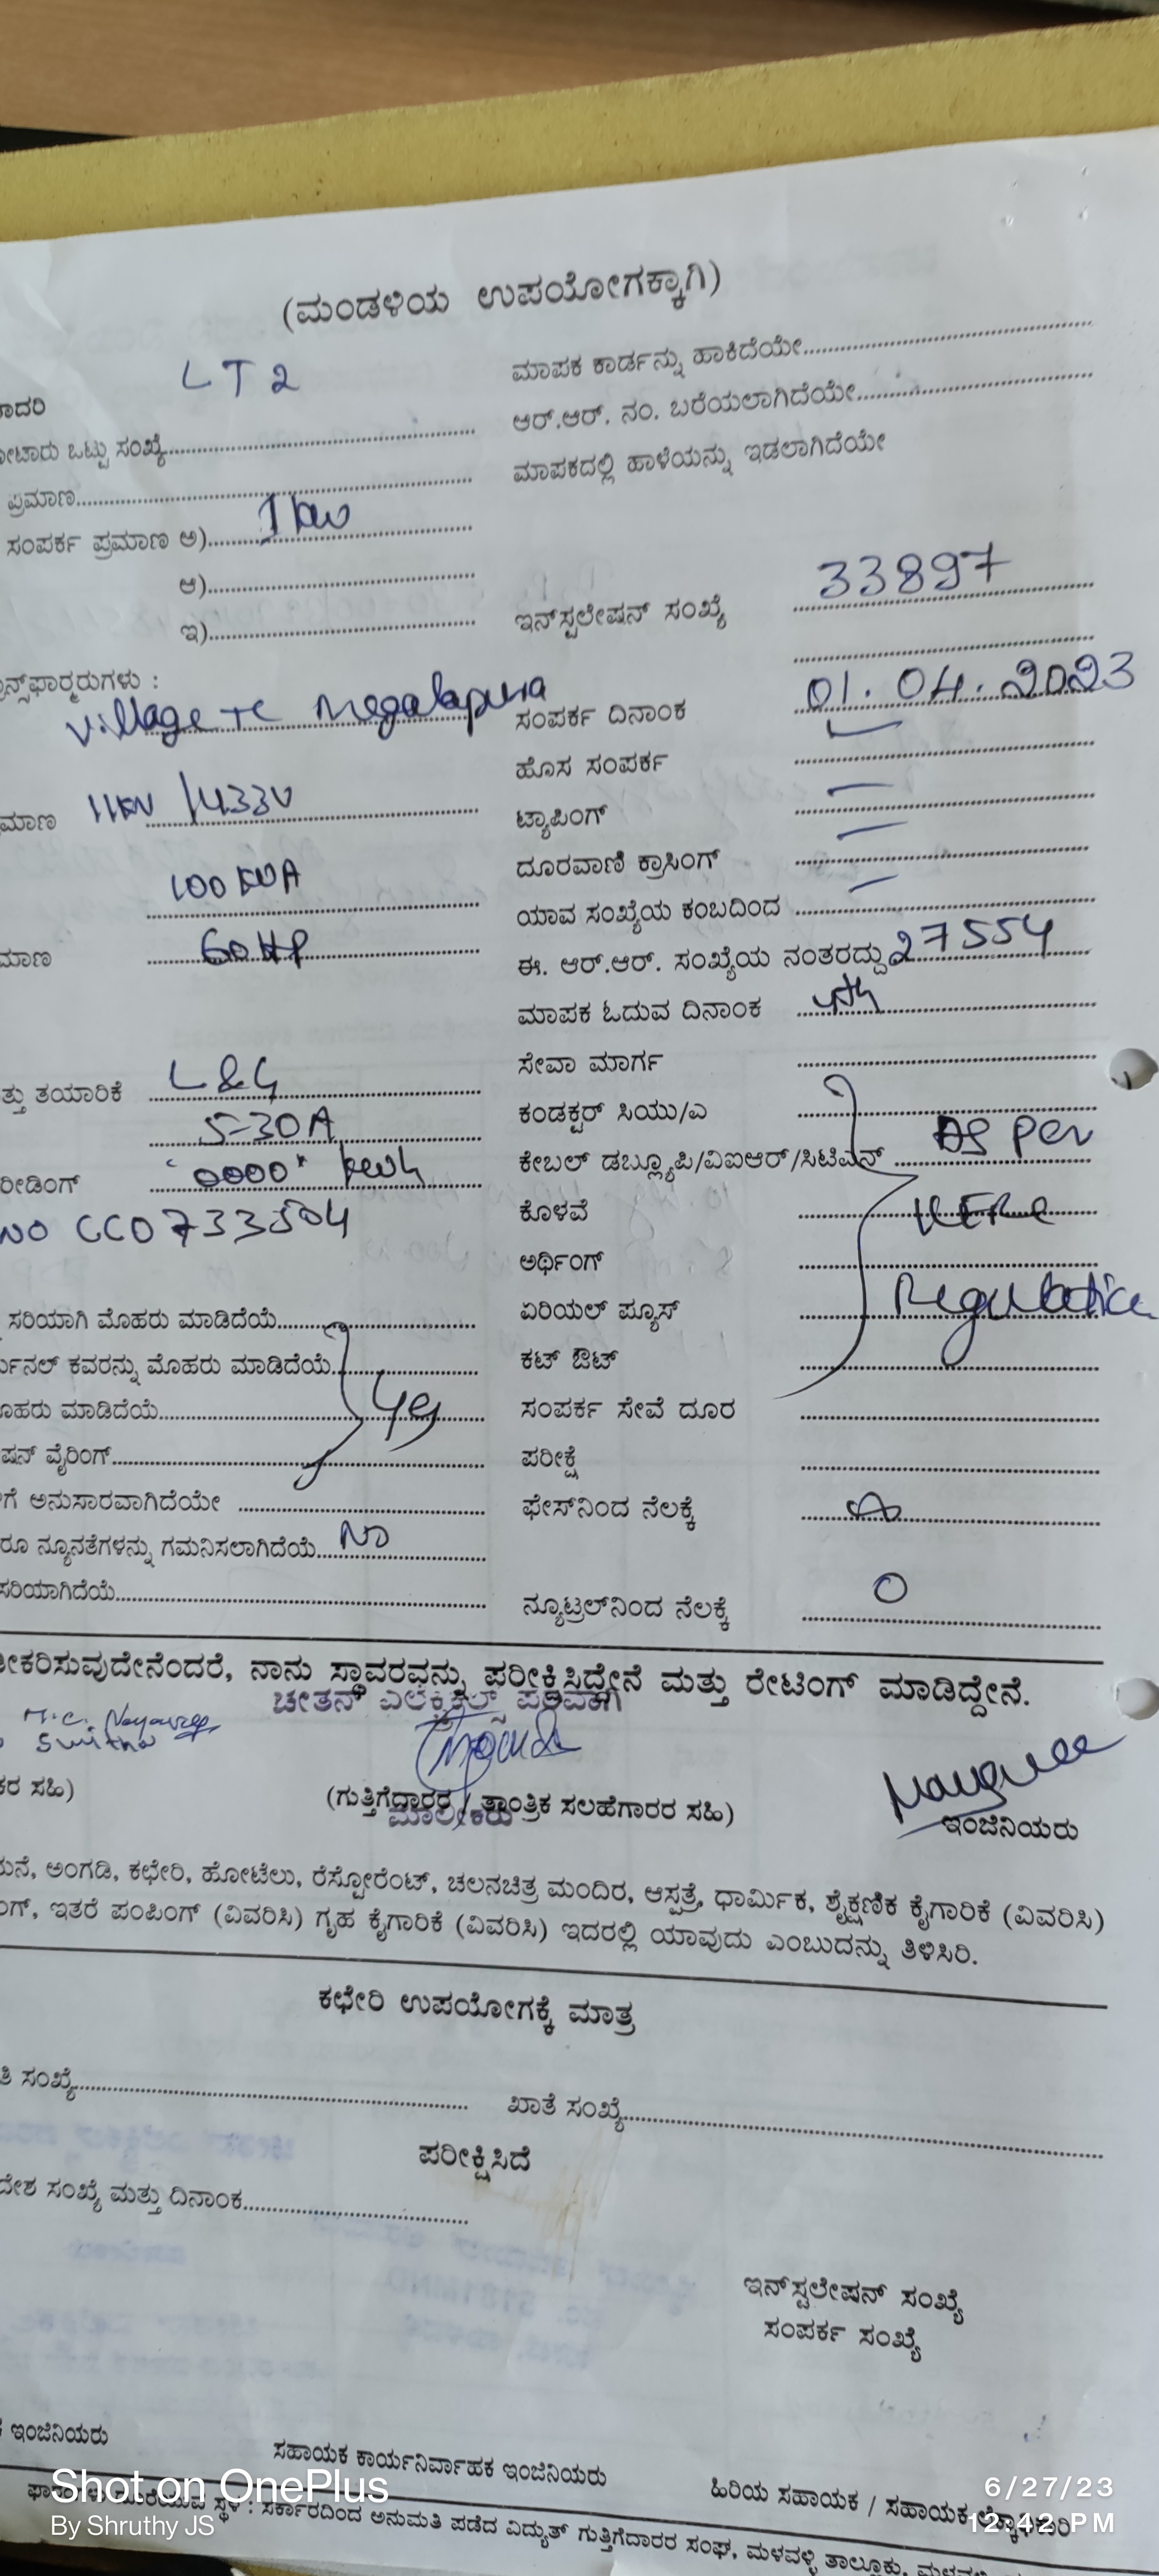 (ಮಂಡಳಿಯ ಉಪಯೋಗಕ್ಕಾಗಿ)
LT2
ಮಾಪಕ ಕಾರ್ಡನ್ನು ಹಾಕಿದೆಯೇ
ಾದರಿ
ಆರ್.ಆರ್. ನಂ. ಬರೆಯಲಾಗಿದೆಯೇ
ೋಟಾರು ಒಟ್ಟು ಸಂಖ್ಯೆ
ಮಾಪಕದಲ್ಲಿ ಹಾಳೆಯನ್ನು ಇಡಲಾಗಿದೆಯೇ
ಪ್ರಮಾಣ
ಸಂಪರ್ಕ ಪ್ರಮಾಣ ಅ) 1 kw
ಆ)
ಇ)
ಇನ್‌ಸ್ಟಲೇಷನ್ ಸಂಖ್ಯೆ 33897
ನ್ಸ್‌ಫಾರ್ಮರುಗಳು :
Village TC Megalapura
ಸಂಪರ್ಕ ದಿನಾಂಕ 01.04.2023
ಹೊಸ ಸಂಪರ್ಕ
ಮಾಣ 11KV /433V
ಟ್ಯಾಪಿಂಗ್
ದೂರವಾಣಿ ಕ್ರಾಸಿಂಗ್
100 KVA
ಯಾವ ಸಂಖ್ಯೆಯ ಕಂಬದಿಂದ
ಮಾಣ 60 HP
ಈ. ಆರ್.ಆರ್. ಸಂಖ್ಯೆಯ ನಂತರದ್ದು 27554
ಮಾಪಕ ಓದುವ ದಿನಾಂಕ 4th
ಸೇವಾ ಮಾರ್ಗ
ತ್ತು ತಯಾರಿಕೆ L&G
ಕಂಡಕ್ಟರ್ ಸಿಯು/ಎ
5-30A
ಕೇಬಲ್ ಡಬ್ಲ್ಯೂಪಿ/ವಿಐಆರ್/ಸಿಟಿಎಸ್ As per
ರೀಡಿಂಗ್ '0000' kwh
ಕೊಳವೆ KERC
NO CCO7333504
ಅರ್ಥಿಂಗ್
ಏರಿಯಲ್ ಪ್ಯೂಸ್ Regulation
ಸರಿಯಾಗಿ ಮೊಹರು ಮಾಡಿದೆಯೆ
ಕಟ್ ಔಟ್
ರ್ಮಿನಲ್ ಕವರನ್ನು ಮೊಹರು ಮಾಡಿದೆಯೆ
ಸಂಪರ್ಕ ಸೇವೆ ದೂರ
ೊಹರು ಮಾಡಿದೆಯೆ yes
ಪರೀಕ್ಷೆ
ಷನ್ ವೈರಿಂಗ್
ಗೆ ಅನುಸಾರವಾಗಿದೆಯೇ
ಫೇಸ್‌ನಿಂದ ನೆಲಕ್ಕೆ
ರೂ ನ್ಯೂನತೆಗಳನ್ನು ಗಮನಿಸಲಾಗಿದೆಯೆ NO
ಸರಿಯಾಗಿದೆಯೆ
ನ್ಯೂಟ್ರಲ್‌ನಿಂದ ನೆಲಕ್ಕೆ 0
ೀಕರಿಸುವುದೇನೆಂದರೆ, ನಾನು ಸ್ಥಾವರವನ್ನು ಪರೀಕ್ಷಿಸಿದ್ದೇನೆ ಮತ್ತು ರೇಟಿಂಗ್ ಮಾಡಿದ್ದೇನೆ.
ಚೇತನ್ ಎಲೆಕ್ಟ್ರಿಕಲ್ಸ್ ಪರವಾಗಿ
ಕರ ಸಹಿ)
(ಗುತ್ತಿಗೆದ್ದಾರರ / ತ್ರಾಂತ್ರಿಕ ಸಲಹೆಗಾರರ ಸಹಿ)
ಮಾಲೀಕರು
ಇಂಜಿನಿಯರು
ಮನೆ, ಅಂಗಡಿ, ಕಛೇರಿ, ಹೋಟೆಲು, ರೆಸ್ಟೋರೆಂಟ್, ಚಲನಚಿತ್ರ ಮಂದಿರ, ಆಸ್ಪತ್ರೆ, ಧಾರ್ಮಿಕ, ಶೈಕ್ಷಣಿಕ ಕೈಗಾರಿಕೆ (ವಿವರಿಸಿ)
ಂಗ್, ಇತರೆ ಪಂಪಿಂಗ್ (ವಿವರಿಸಿ) ಗೃಹ ಕೈಗಾರಿಕೆ (ವಿವರಿಸಿ) ಇದರಲ್ಲಿ ಯಾವುದು ಎಂಬುದನ್ನು ತಿಳಿಸಿರಿ.
ಕಛೇರಿ ಉಪಯೋಗಕ್ಕೆ ಮಾತ್ರ
ತಿ ಸಂಖ್ಯೆ
ಖಾತೆ ಸಂಖ್ಯೆ
ಪರೀಕ್ಷಿಸಿದೆ
ದೇಶ ಸಂಖ್ಯೆ ಮತ್ತು ದಿನಾಂಕ
ಇನ್‌ಸ್ಟಲೇಷನ್ ಸಂಖ್ಯೆ
ಸಂಪರ್ಕ ಸಂಖ್ಯೆ
ಇಂಜಿನಿಯರು
ಸಹಾಯಕ ಕಾರ್ಯನಿರ್ವಾಹಕ ಇಂಜಿನಿಯರು
ಹಿರಿಯ ಸಹಾಯಕ / ಸಹಾಯಕ
ಸ್ಥಳ : ಸರ್ಕಾರದಿಂದ ಅನುಮತಿ ಪಡೆದ ವಿದ್ಯುತ್ ಗುತ್ತಿಗೆದಾರರ ಸಂಘ, ಮಳವಳ್ಳಿ ತಾಲ್ಲೂಕು,
Shot on OnePlus
By Shruthy JS
6/27/23
12:42 PM